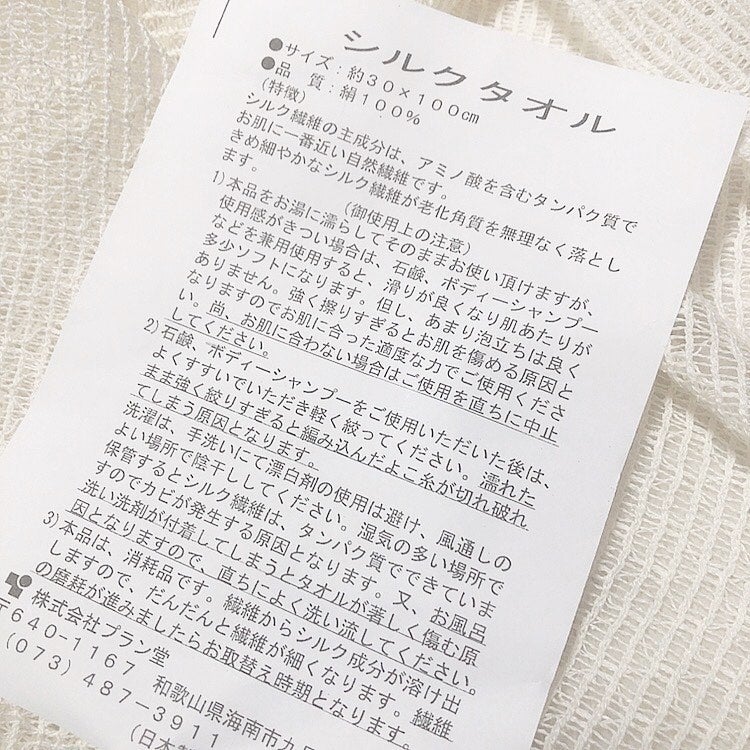 シルクタオル
●サイズ：約30×100㎝
●品　質：絹100％
(特徴)
シルク繊維の主成分は、アミノ酸を含むタンパク質で
お肌に一番近い自然繊維です。
きめ細やかなシルク繊維が老化角質を無理なく落とし
ます。
(御使用上の注意)
1)本品をお湯に濡らしてそのままお使い頂けますが、
使用感がきつい場合は、石鹸、ボディーシャンプー
などを兼用使用すると、滑りが良くなり肌あたりが
多少ソフトになります。但し、あまり泡立ちは良く
ありません。強く擦りすぎるとお肌を傷める原因と
なりますのでお肌に合った適度な力でご使用くださ
い。尚、お肌に合わない場合はご使用を直ちに中止
してください。
2)石鹸、ボディーシャンプーをご使用いただいた後は、
よくすすいでいただき軽く絞ってください。濡れた
まま強く絞りすぎると編み込んだよこ糸が切れ破れ
てしまう原因となります。
洗濯は、手洗いにて漂白剤の使用は避け、風通しの
よい場所で陰干ししてください。湿気の多い場所で
保管するとシルク繊維は、タンパク質でできていま
すのでカビが発生する原因となります。又、お風呂
洗い洗剤が付着してしまうとタオルが著しく傷む原
因となりますので、直ちによく洗い流してください。
3)本品は、消耗品です。繊維からシルク成分が溶け出
しますので、だんだんと繊維が細くなります。繊維
の磨耗が進みましたらお取替え時期となります。
株式会社プラン堂
〒640-1167 和歌山県海南市九
(073)487-3911
(日本製